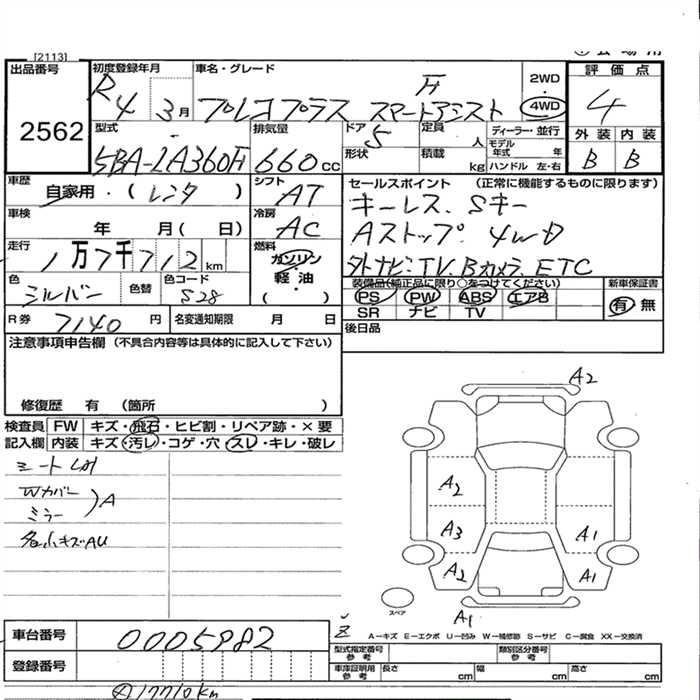 [2113]
出品番号
2562
初度登録年月
R4 3月
車名・グレード
プレコプラス スマートアシスト
2WD
4WD
評価点
4
外装 内装
B B
型式
5BA-LA360F
排気量
660cc
ドア 5
形状
定員 人
積載 kg
ディーラー・並行
モデル年式 年
ハンドル 左・右
車歴
自家用・(レンタ)
シフト
AT
車検
年 月(日)
冷房
AC
走行
1万7千712km
燃料
ガソリン・軽油・( )
色
シルバー
色替
色コード
S28
R券
7140円
名変通知期限 月 日
セールスポイント (正常に機能するものに限ります)
キーレス、Sキー
Aストップ 4WD
外ナビ・TV、Bカメラ、ETC
装備品(純正品に限り○をつけてください)
PS PW ABS エアB
SR ナビ TV
新車保証書
有 無
後日品
注意事項申告欄 (不具合内容等は具体的に記入して下さい)
修復歴 有 (箇所 )
検査員記入欄
FW キズ・飛石・ヒビ割・リペア跡・×要
内装 キズ・汚レ・コゲ・穴・スレ・キレ・破レ
Wカバー
ミラー
A
各小キズAU
A2
A2
A3
A2
A1
A1
A1
スペア
A−キズ E−エクボ U−凹み W−補修跡 S−サビ C−腐食 XX−交換済
車台番号
0005982
登録番号
型式指定番号 参考
類別区分番号 参考
車庫証明用 参考
長さ cm
幅 cm
高さ cm
17710km